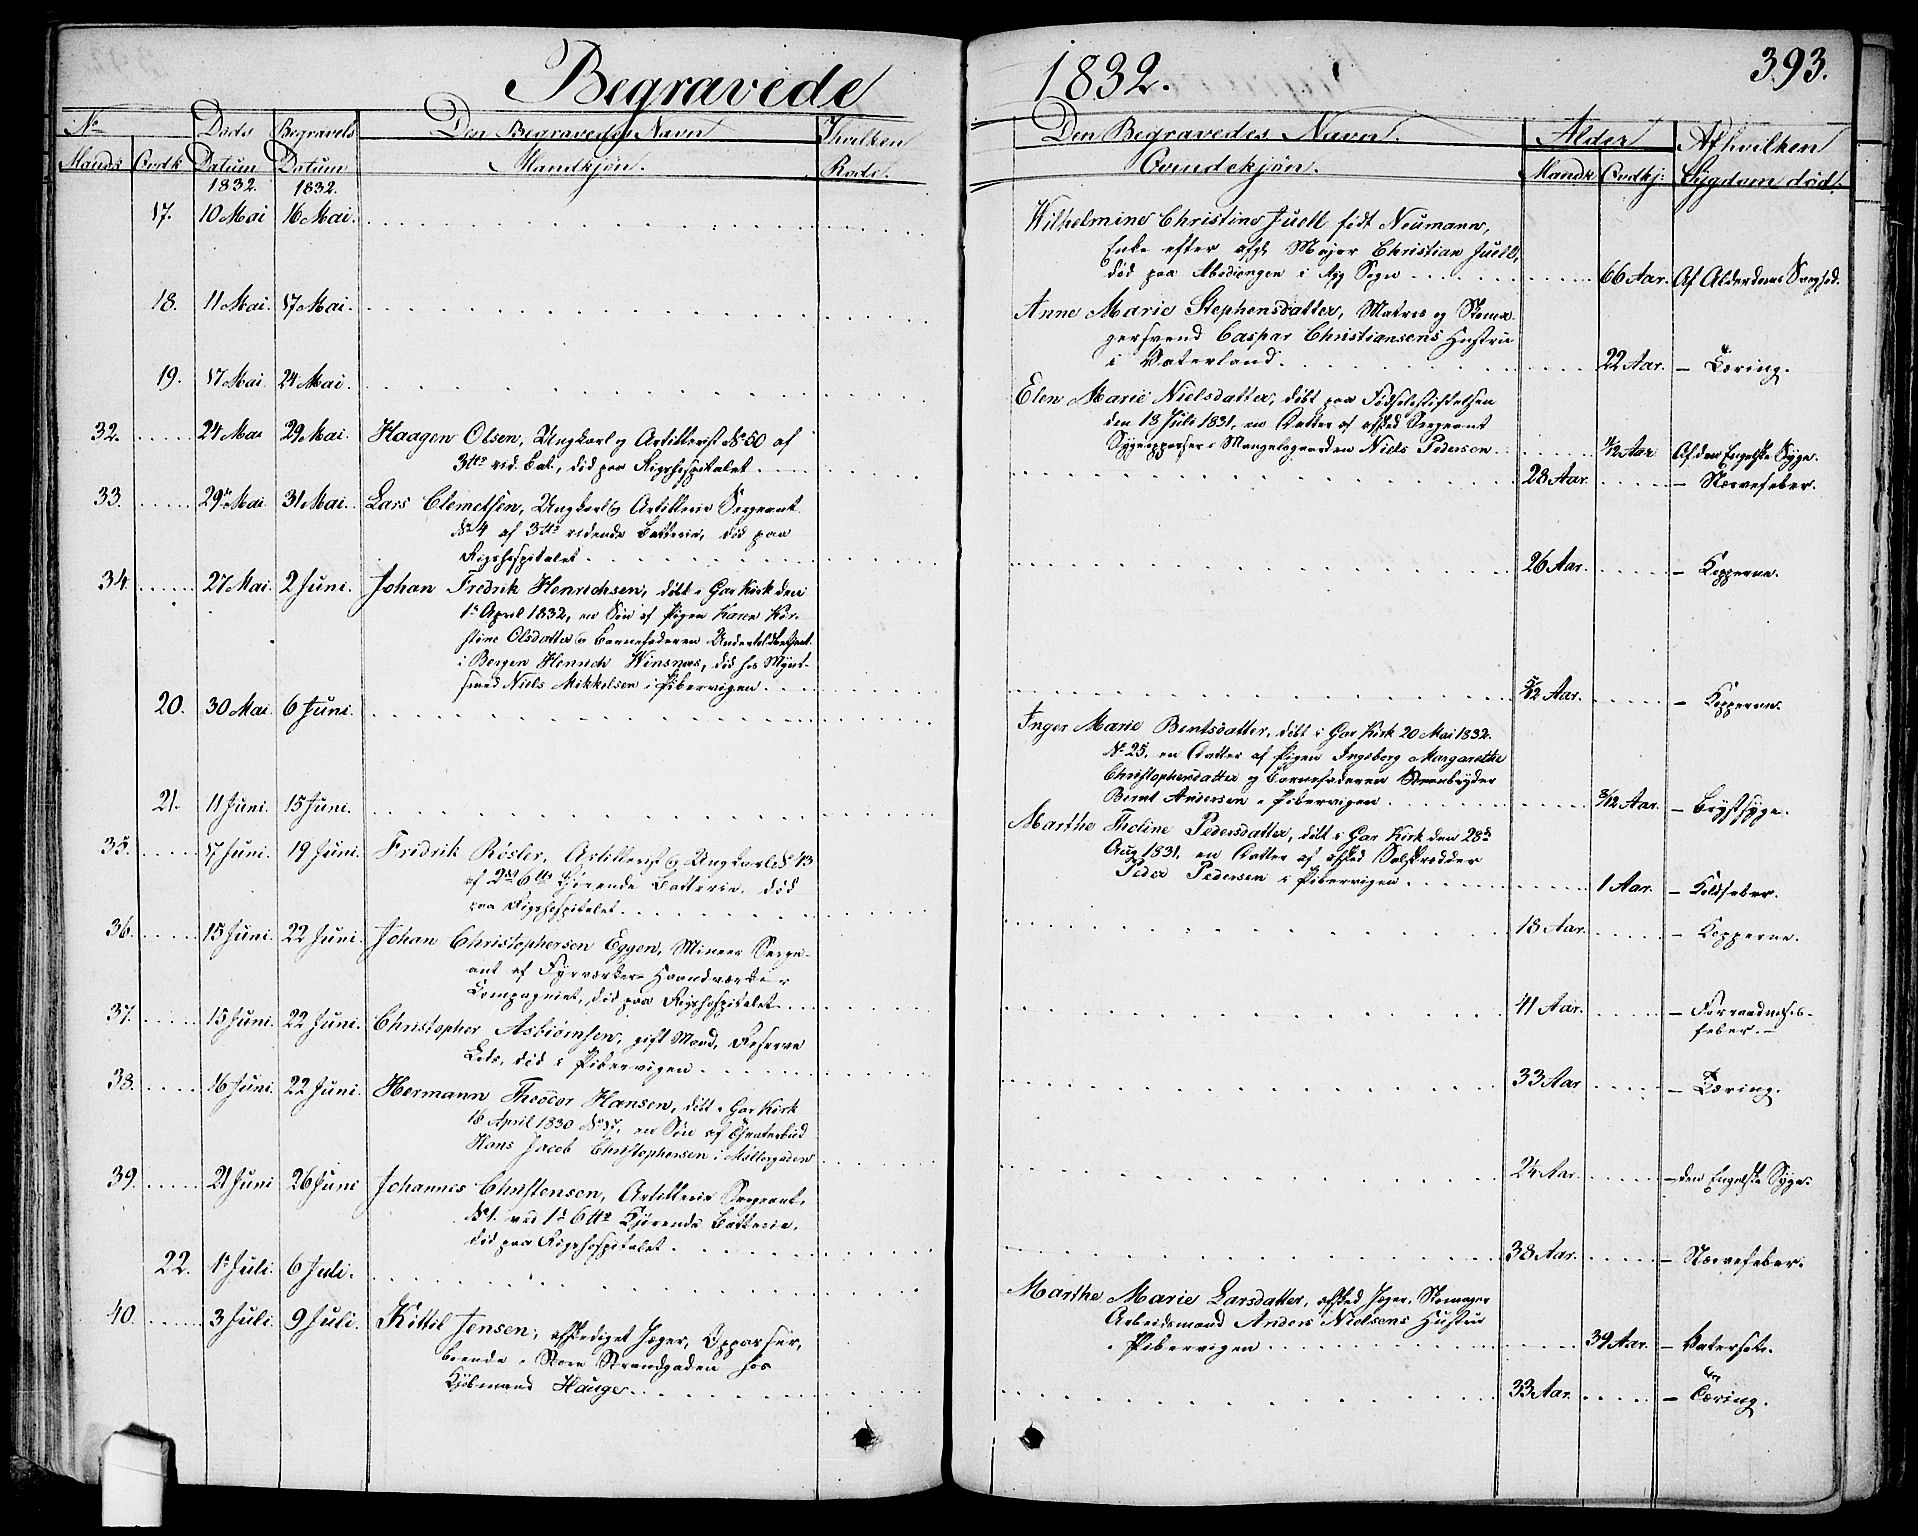 Begravede 1832. 393.
No Døds Begravels Den Begravedes Navn I hvilken Den Begravedes Navn. Alder Af hvilken
Mandk Qvdk Datum Datum Mandkjøn. Rode. Qvindekjøn. Mandk Qvdkj: Sygdom død.
1832. 1832.
17. 10 Mai 16 Mai.
Wilhelmine Christine Juell født Neumann,
Enke efter afgl Major Christian Juell,
død paa i Agg Sogn 66 Aar. Af Alderdoms Svaghed.
18. 11 Mai. 17 Mai.
Anne Marie Stephensdatter, Matros og
Caspar Christiansens Hustru
i Vaterland. 22 Aar. — Tæring.
19. 17 Mai. 24 Mai.
Elen Marie Nielsdatter, døbt paa Fødselsstiftelsen
den 13 Juli 1831, en Datter af afsked Sergeant
Sygeopvarter i Mangelsgaarden Niels Pedersen Aar Af den Engelske Syge.
32. 24 Mai 29 Mai. Haagen Olsen, Ungkarl og Artillerist No 50 af
3die rid. Bat., død paa Rigshospitalet. 28 Aar. — Nervefeber.
33. 29 Mai 31 Mai. Lars Clemetsen, Ungkarl og Artillerie Sergeant
No 4 af 3die ridende Batterie, død paa
Rigshospitalet 26 Aar. — Kopperne.
34. 27 Mai. 2 Juni. Johan Fredrik Henrichsen, døbt i Gar Kirk den
1 April 1832, en Søn af Pigen Karen Kir-
stine Olsdatter og Barnefaderen
i Bergen Henrich Winsnæs, død hos
Niels Mikkelsen i Pibervigen. 5/12 Aar. — Kopperne.
20. 30 Mai. 6 Juni.
Inger Marie Berntsdatter, døbt i Gar Kirk 20 Mai 1832.
No 25, en Datter af Pigen Ingeborg Margarethe
Christophersdatter og Barnefaderen Steenbryder
Bernt Andersen i Pibervigen 3/12 Aar. — Brystsyge.
21. 11 Juni. 15 Juni.
Marthe Tholine Pedersdatter, døbt i Gar Kirk den 28d
Aug 1831, en Datter af afsked
Peder Pedersen i Pibervigen 1 Aar. — Koldfeber.
35. 17 Juni. 19 Juni. Fridrik Røsler, Artillerist og Ungkarl No 43
af 2d 6tt kjørende Batterie, død
paa Rigshospitalet. 18 Aar. — Kopperne.
36. 15 Juni. 22 Juni. Johan Christophersen Eggen, Mineer Serge-
ant af Fyrværker- Haandværker
Compagniet, død paa Rigshospitalet 41 Aar. — Forraadnelses-
feber. —
37. 15 Juni 22 Juni. Christopher Asbiørnsen, gift Mand, Reserve
Lods, død i Pibervigen 33 Aar — Tæring.
38. 16 Juni. 22 Juni. Hermann Theodor Hansen, døbt i Gar Kirk
18 April 1830 No 87, en Søn af
Hans Jacob Christophersen i Møllergaden 24 Aar. — den Engelske Syge.
39. 21 Juni 26 Juni Johannes Christensen, Artillerie Sergeant,
No 1. ved 1d 6tt Kjørende Batterie,
død paa Rigshospitalet. 38 Aar. — Nervefeber.
22. 1 Juli. 6 Juli.
Marthe Marie Larsdatter, afsked Jæger,
Arbeidsmand Anders Nielsens Hustru
i Pibervigen 39 Aar. — Vatersot.
40. 3 Juli. 9 Juli. Kittil Jensen, afskediget Jæger, Opvarter,
boende i Store Strandgaden hos
Kjøbmand Hauge. 33 Aar. — Tæring.